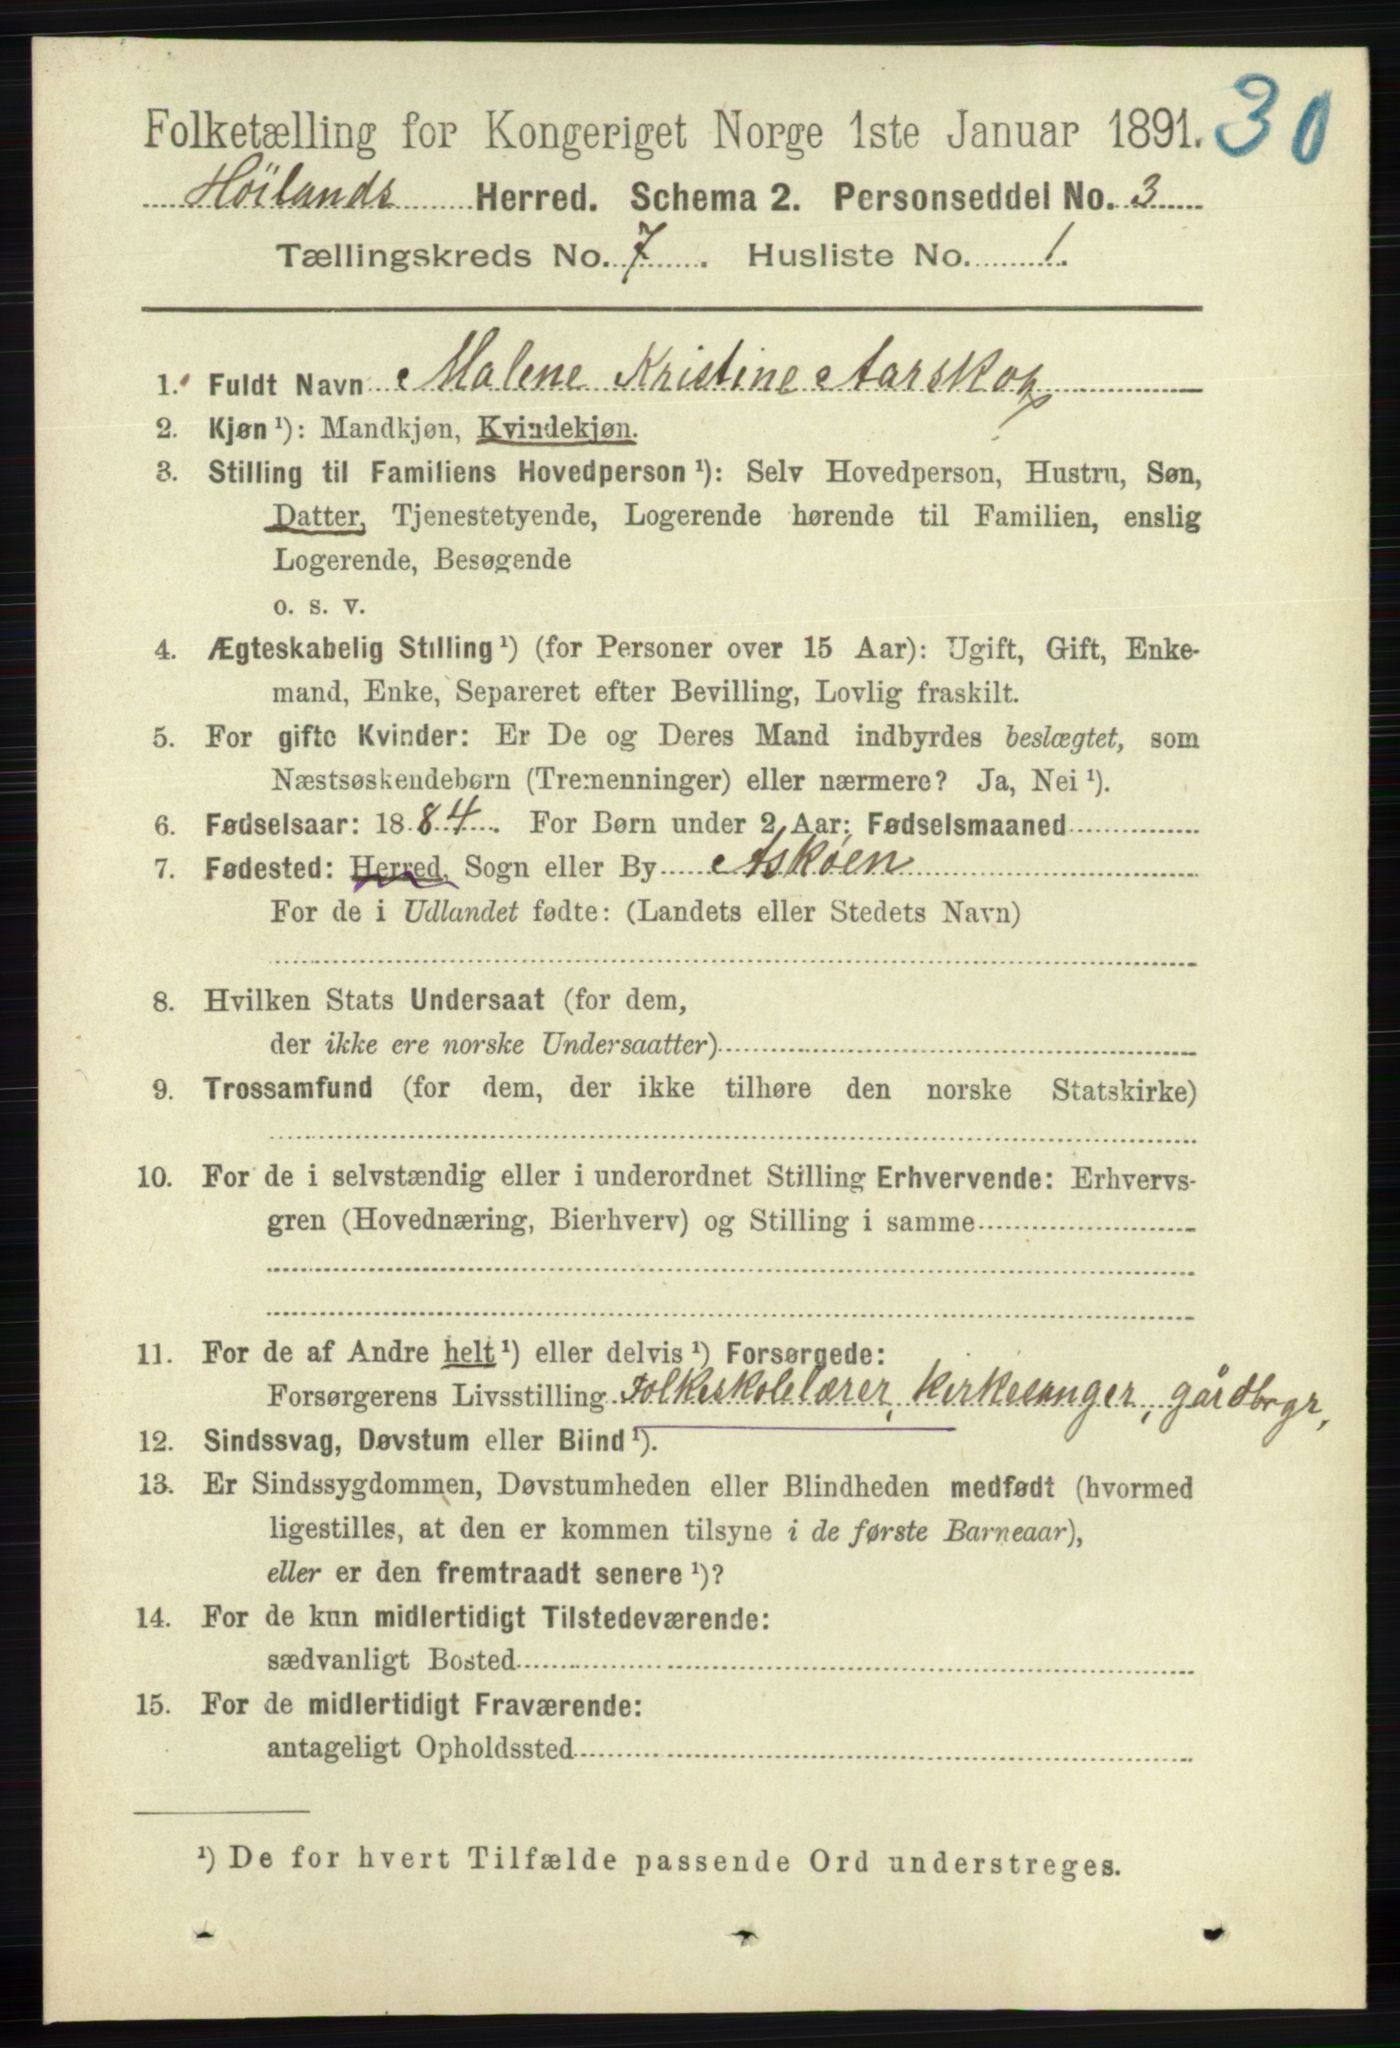 30
Folketælling for Kongeriget Norge 1ste Januar 1891.
Höilands Herred. Schema 2. Personseddel No. 3
Tællingskreds No. 7. Husliste No. 1.
1. Fuldt Navn Malene Kristine Aarskog
2. Kjøn ¹): Mandkjøn, Kvindekjøn.
3. Stilling til Familiens Hovedperson ¹): Selv Hovedperson, Hustru, Søn,
Datter, Tjenestetyende, Logerende hørende til Familien, enslig
Logerende, Besøgende
o. s. v.
4. Ægteskabelig Stilling ¹) (for Personer over 15 Aar): Ugift, Gift, Enke-
mand, Enke, Separeret efter Bevilling, Lovlig fraskilt.
5. For gifte Kvinder: Er De og Deres Mand indbyrdes beslægtet, som
Næstsøskendebørn (Tremenninger) eller nærmere? Ja, Nei ¹).
6. Fødselsaar: 1884. For Børn under 2 Aar: Fødselsmaaned
7. Fødested: Herred, Sogn eller By Askøen
For de i Udlandet fødte: (Landets eller Stedets Navn)
8. Hvilken Stats Undersaat (for dem,
der ikke ere norske Undersaatter)
9. Trossamfund (for dem, der ikke tilhøre den norske Statskirke)
10. For de i selvstændig eller i underordnet Stilling Erhvervende: Erhvervs-
gren (Hovednæring, Bierhverv) og Stilling i samme
11. For de af Andre helt ¹) eller delvis ¹) Forsørgede:
Forsørgerens Livsstilling Folkeskolelærer, kirkesanger, gårdbrgr,
12. Sindssvag, Døvstum eller Blind ¹).
13. Er Sindssygdommen, Døvstumheden eller Blindheden medfødt (hvormed
ligestilles, at den er kommen tilsyne i de første Barneaar),
eller er den fremtraadt senere ¹)?
14. For de kun midlertidigt Tilstedeværende:
sædvanligt Bosted
15. For de midlertidigt Fraværende:
antageligt Opholdssted
¹) De for hvert Tilfælde passende Ord understreges.